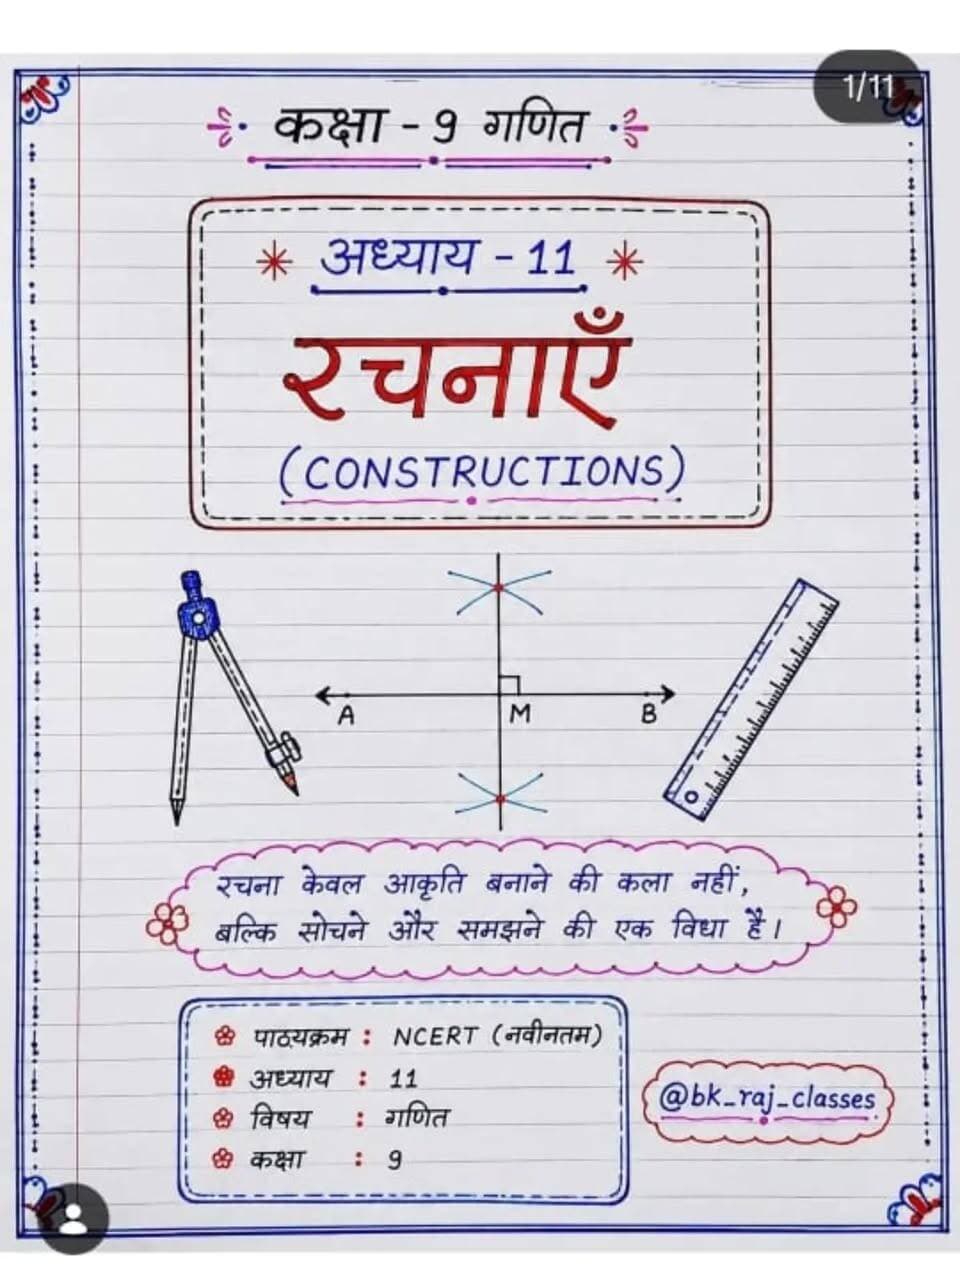 1/11
कक्षा - 9 गणित
अध्याय - 11
रचनाएँ
(CONSTRUCTIONS)
A M B
रचना केवल आकृति बनाने की कला नहीं,
बल्कि सोचने और समझने की एक विधा है।
पाठयक्रम : NCERT (नवीनतम)
अध्याय : 11
विषय : गणित
कक्षा : 9
@bk_raj_classes